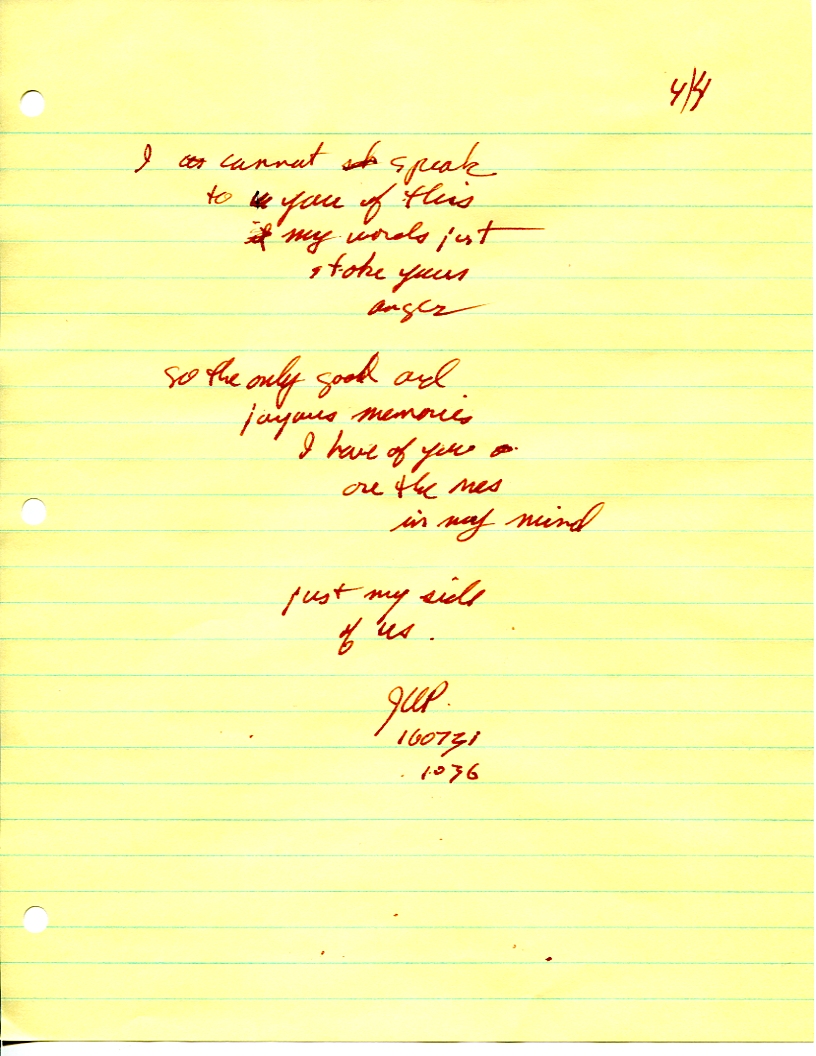 4/4
I cannot speak
to you of this
my words just
stoke your
anger
so the only good and
joyous memories
I have of you
are the ones
in my mind
just my side
of us.
160731
1036